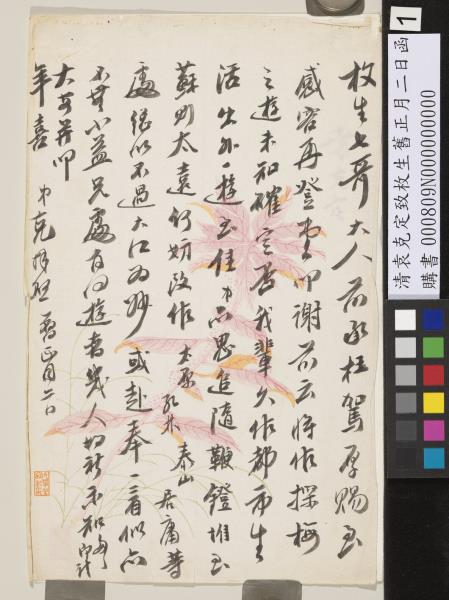 枚生七哥大人前承枉駕厚賜至
感容再登堂叩謝前云將作探梅
之遊未知確定否我輩久作都市生
活出外一遊至佳弟亦思追隨鞭鐙惟至
蘇則太遠何妨改作太原 泰山 居庸等
處總以不過大江為妙或赴奉一看似亦
不無小益兄處有同遊者幾人如祈示知
大哥並叩
年喜 弟克 舊正月二日
1
清袁克定致枚生舊正月二日函
購書 000809N000000000